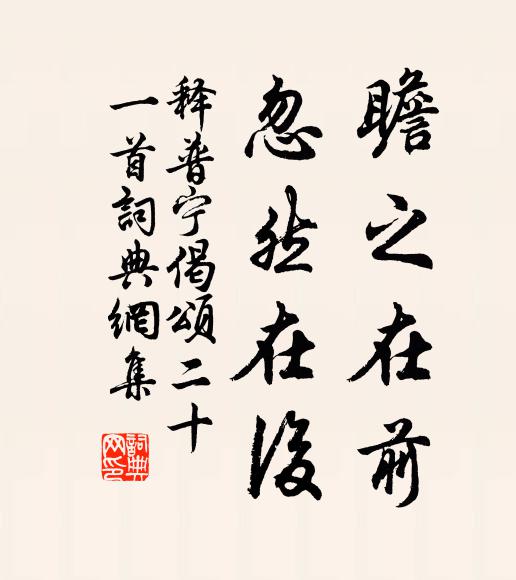 瞻之在前
忽然在後
释普宁偈頌二十
一首詞典網集
詞典
网印